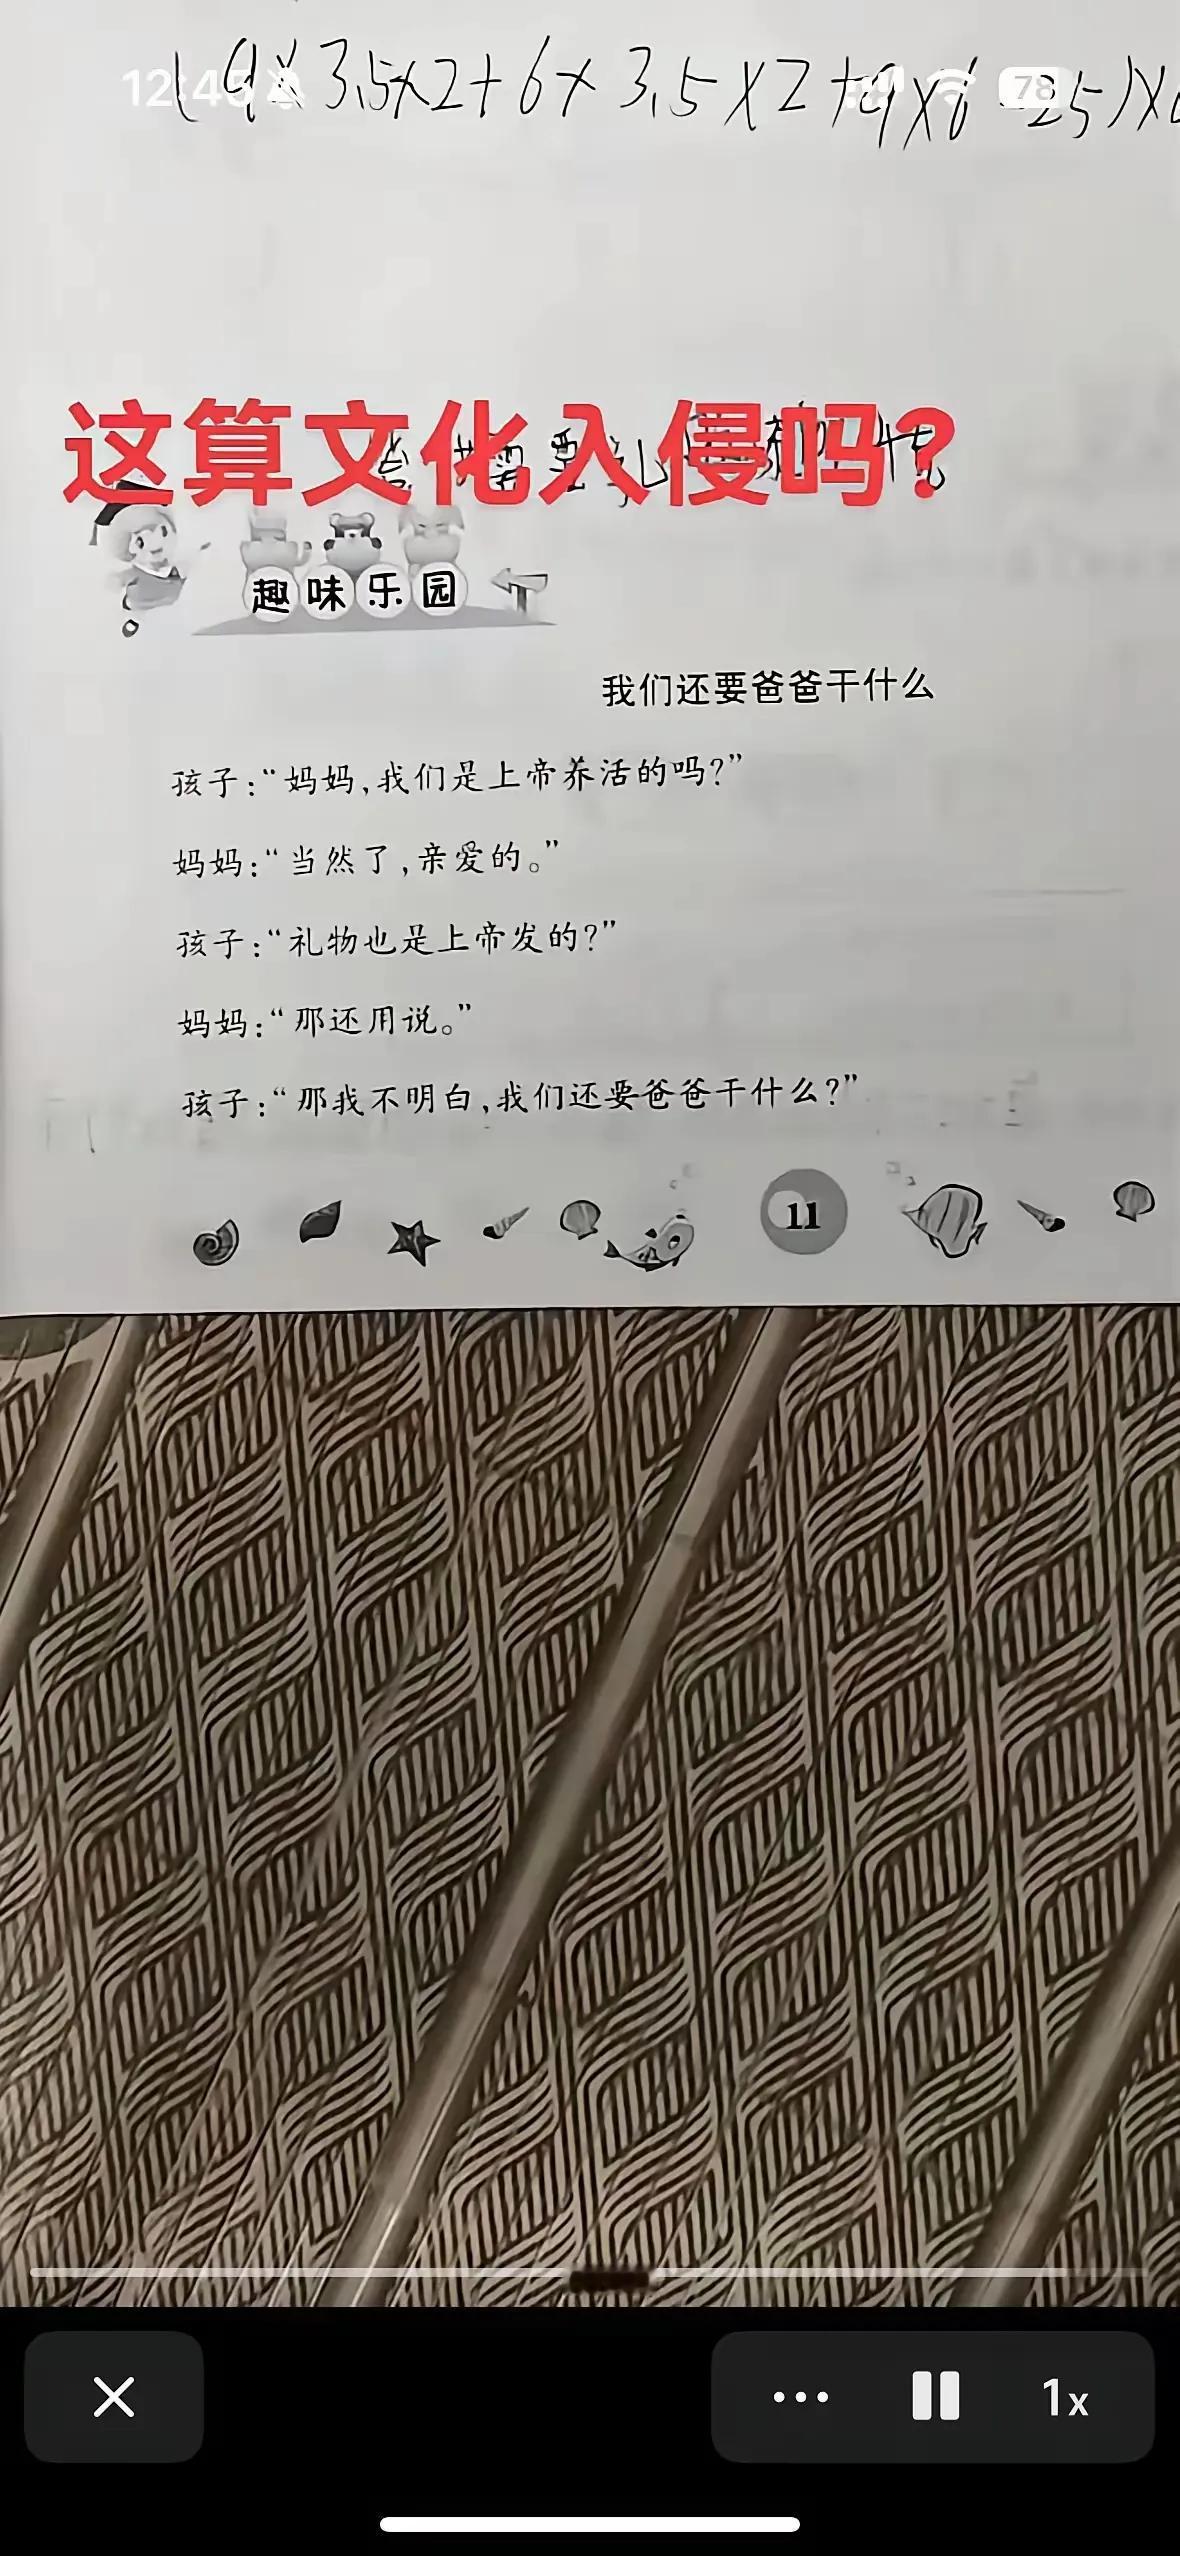 12:45
78
(9×3.5×2+6×3.5×2+9×6-25)×
这算文化入侵吗?
趣味乐园
我们还要爸爸干什么
孩子:“妈妈,我们是上帝养活的吗?”
妈妈:“当然了,亲爱的。”
孩子:“礼物也是上帝发的?”
妈妈:“那还用说。”
孩子:“那我不明白,我们还要爸爸干什么?”
11
1x